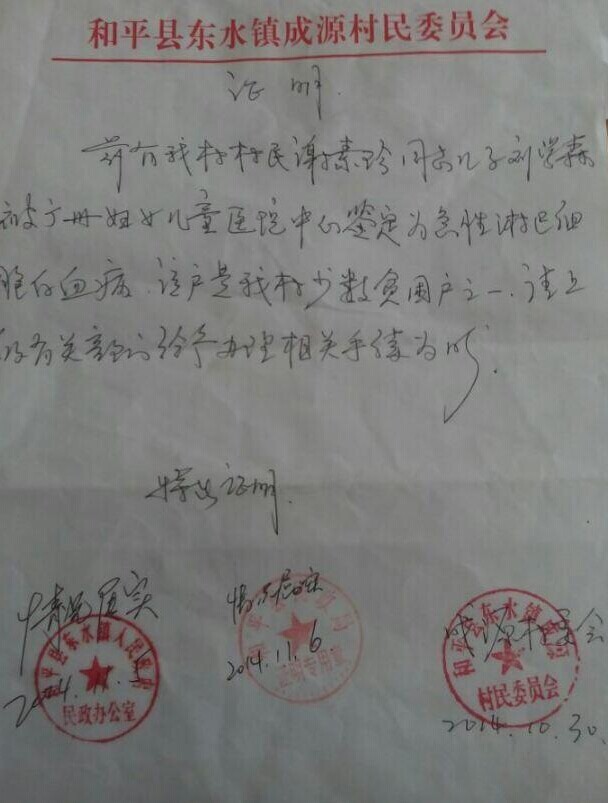 和平县东水镇成源村民委员会
证明
兹有我村村民谢素玲同志儿子刘学森
被广州妇女儿童医院中心鉴定为急性淋巴细
胞白血病.该户是我村少数贫困户之一.请上
级有关部门给予办理相关手续为盼.
特此证明.
情况属实
和平县东水镇人民政府
民政办公室
情况属实
2014.11.6
和平县东水镇成源
村民委员会
成源村委会
2014.10.30.